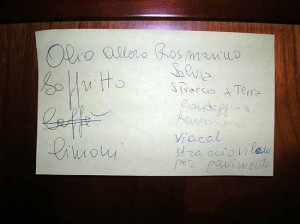 Olio Alloro Rosmarino
Soffritto
Caffè
Limoni
Salvia
Straccio x Terra
Candeggina
Viacal
straccio vileda
per pavimenti